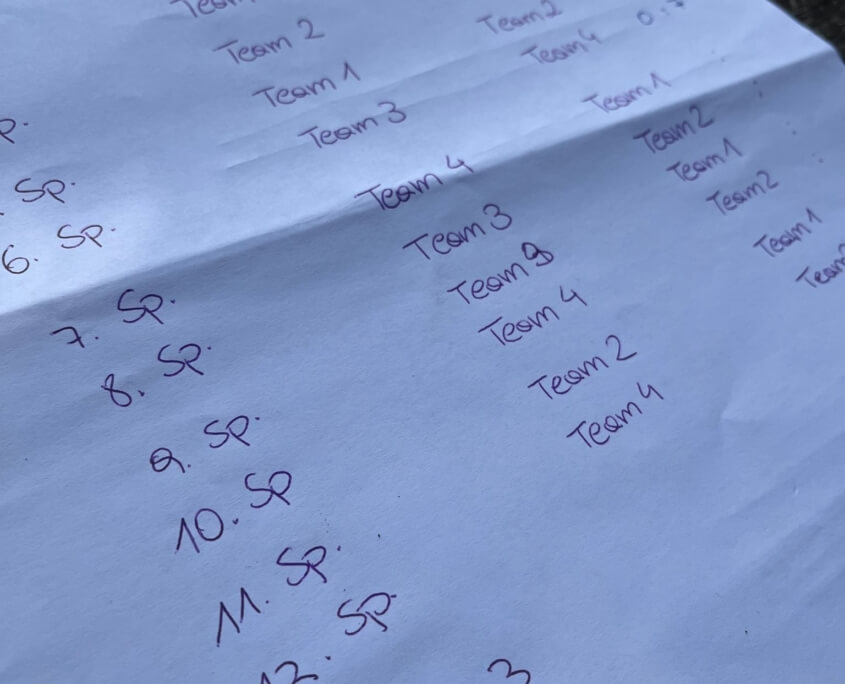 Team 2
Sp. Team 1 Team 2
6. Sp. Team 3 Team 4
7. Sp. Team 4 Team 1
8. Sp. Team 3 Team 2
9. Sp. Team Team 1
10. Sp Team 4 Team 2
11. Sp. Team 2 Team 1
12. Sp. Team 4 Team
3